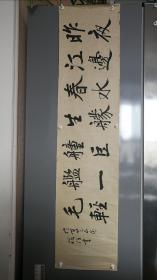 昨夜
江邊
春水
生艨
艟巨
艦一
毛輕